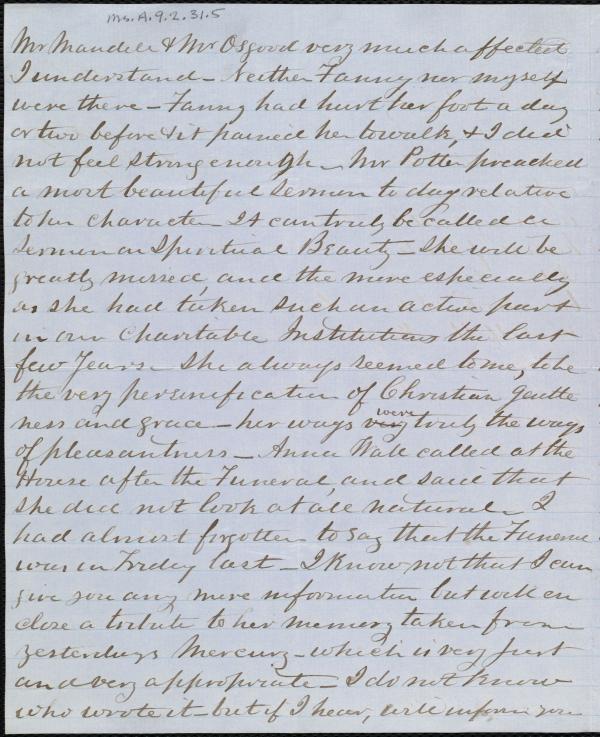 Ms.A.9.2.31.5
Mr Mandell & Mr Osgood very much affected
I understand - Neither Fanny nor myself
were there - Fanny had hurt her foot a day
or two before & it pained her to walk, & I did
not feel strong enough - Mr Potter preached
a most beautiful Sermon to day relative
to her character - It can truly be called a
Sermon on Spiritual Beauty - She will be
greatly missed, and the more especially
as she had taken such an active part
in our Charitable Institutions the last
few Years - She always seemed to me, to be
the very personification of Christian gentle
ness and grace - her ways very were truly the ways
of pleasantness - Anna Wall called at the
House after the Funeral, and said that
she did not look at all natural - I
had almost forgotten to say that the Funeral
was on Friday last - I know not that I can
give you any more information but will en
close a tribute to her memory taken from
yesterdays Mercury - which is very just
and very appropriate - I do not know
who wrote it - but if I hear, will inform you